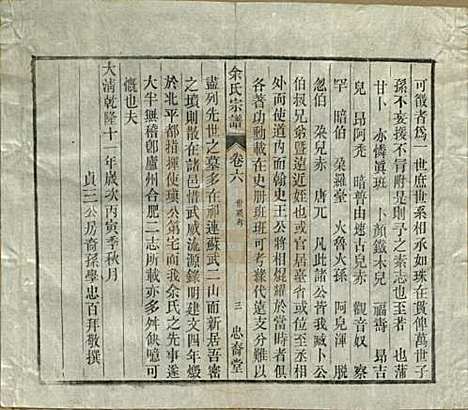 可徵者爲一世庶世系相承如珠在貫俾萬世子
孫不妄援不冐附是則予之素志也 蒲
甘卜 亦憐眞班 卜顏鐵木兒 福壽 昂吉
兒 昂阿禿 暗普由速古兒赤 觀音奴 察
罕 暗伯 朶羅臺 火魯火孫 阿兒渾 脱
忽伯 朶兒赤 唐兀 凡此諸公皆我臧卜公
伯叔兄弟曁遠近姪也或官居臺省或位至丞相
外而使道内而翰史王公將相焜耀於當時者各
各著功勳載在史册班班可考緣代遠支分難以
余氏宗譜
卷六
三 忠裔堂
盡列先世之墓多在 連蘇武二山而新居吾密
之墳則散在諸邑嘗攷武威流源錄明建文四年燬
於北平都指揮使瑱公第宅而我余氏之先事遂
大半無稽卽廬州合肥二志所載亦多舛缺噫可
慨也夫
大淸乾隆十一年歲次丙寅季秋月
貞三公房裔孫學忠百拜敬撰